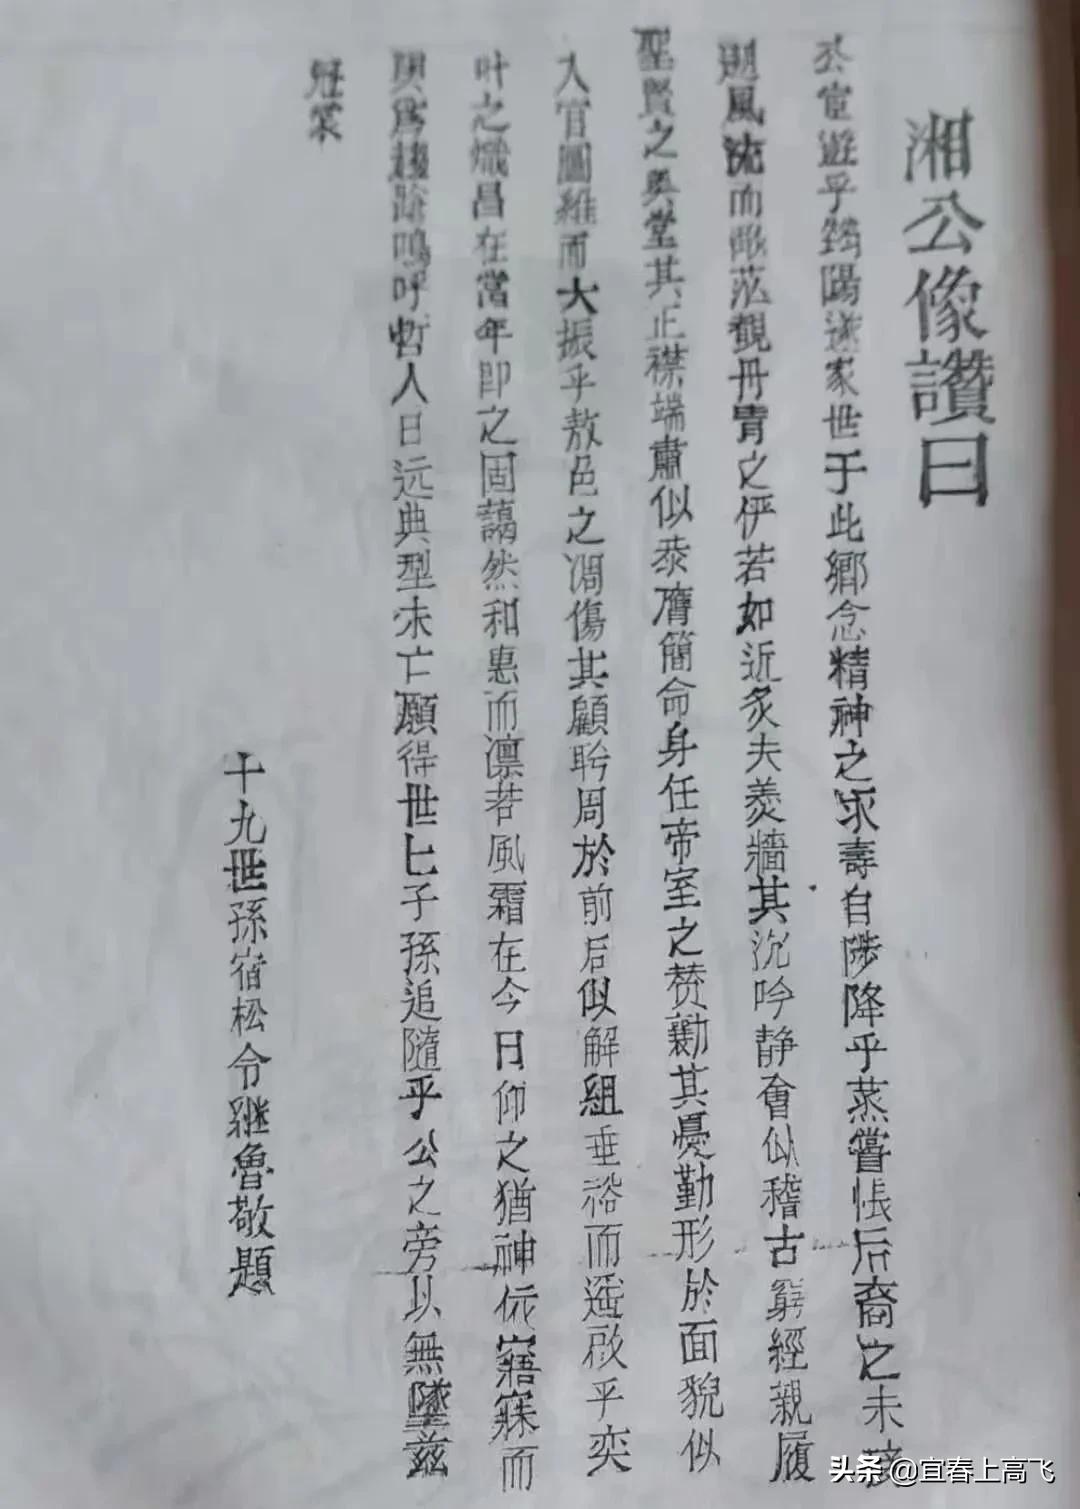 湘公像讚曰
公宦遊乎筠陽遂家世于此鄉念精神之永壽自陟降乎蒸嘗悵后裔之未接
風流而 范觀丹胄之伊若如近炙夫羨牆其沉吟静會似稽古窮經親履
聖賢之奥堂其正襟端肅似忝膺簡命身任帝室之赞勷其憂勤形於面貌似
入官圖維而大振乎敖邑之凋傷其顧盻周於前后似解組垂裕而遥啟乎奕
叶之熾昌在當年即之固藹然和惠而凛若風霜在今日仰之猶神依寤寐而
與為趨蹌嗚呼哲人日远典型未亡願得世匕子孫追隨乎公之旁以無墜兹
冠裳
十九世孫宿松令繼魯敬題
头条@宜春上高飞